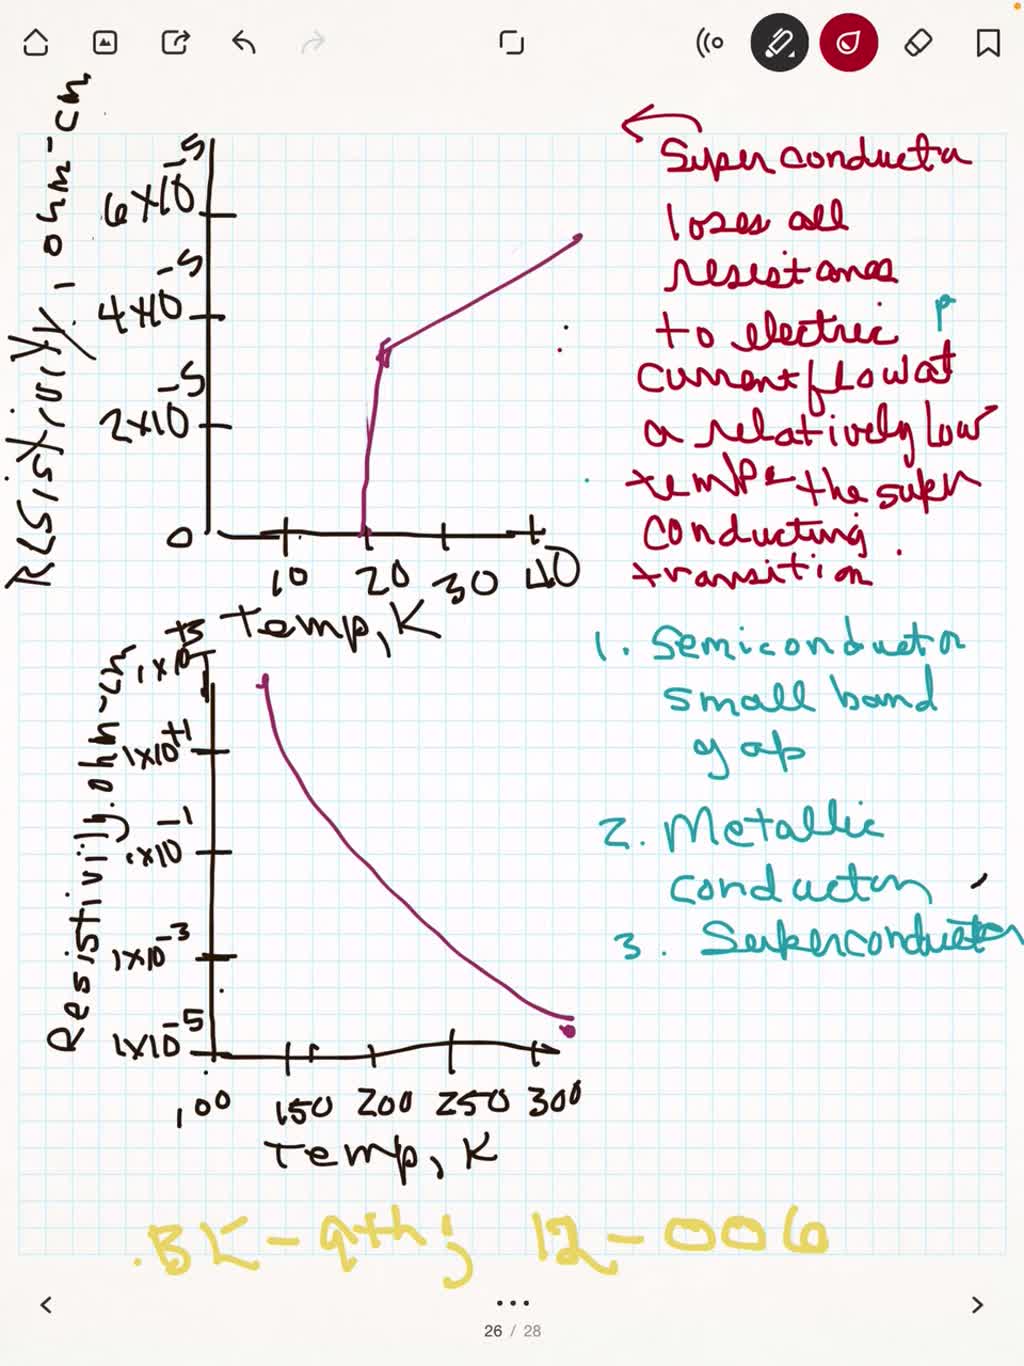 Resistivity, ohm-cm
6x10-5
4x10-5
2x10-5
0
10 20 30 40
Temp, K
Superconducta
loses all
resistance
to electric
p
current flow at
a relatively low
temp - the super
conducting
transition.
1x10+3
1x10+1
1x10-1
1x10-3
1x10-5
Resistivily.ohm-cm
100 150 200 250 300
Temp, K
1. Semiconductor
small band
gap
2. Metallic
conductor
3. Superconductor
BK-9th; 12-006
26 / 28